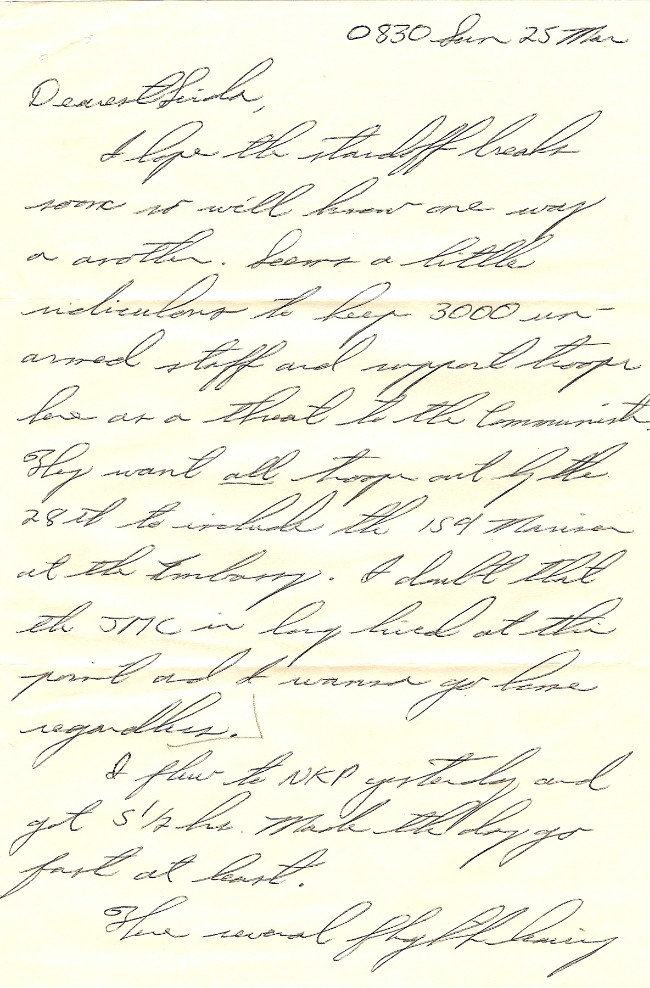 0830 Sun 25 Mar
Dearest Linda,
I hope the standoff breaks
soon so we'll know one way
or another. Seems a little
ridiculous to keep 3000 un-
armed staff and support troops
here as a threat to the Communists.
They want all troops out by the
28th to include the 159 Marines
at the Embassy. I doubt that
the JMC is long lived at this
point and I wanna go home
regardless.
I flew to NKP yesterday and
got 5 1/2 hrs. Made the day go
fast at least.
There several flights leaving